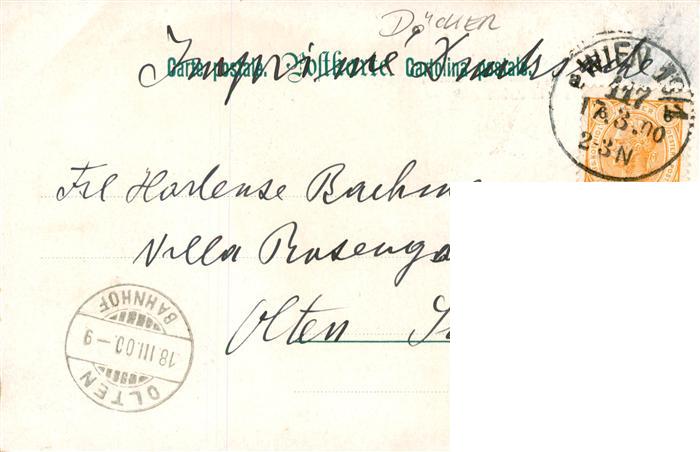 DÖCHER
Imprimé Drucksache
Carte postale. Postkarte Cartolina postale.
WIEN 15/1
117
17.3.00
2-3N
Frl Hortense Bachm
Villa Rosenga
Olten
BAHNHOF
18.III.00.-9
OLTEN